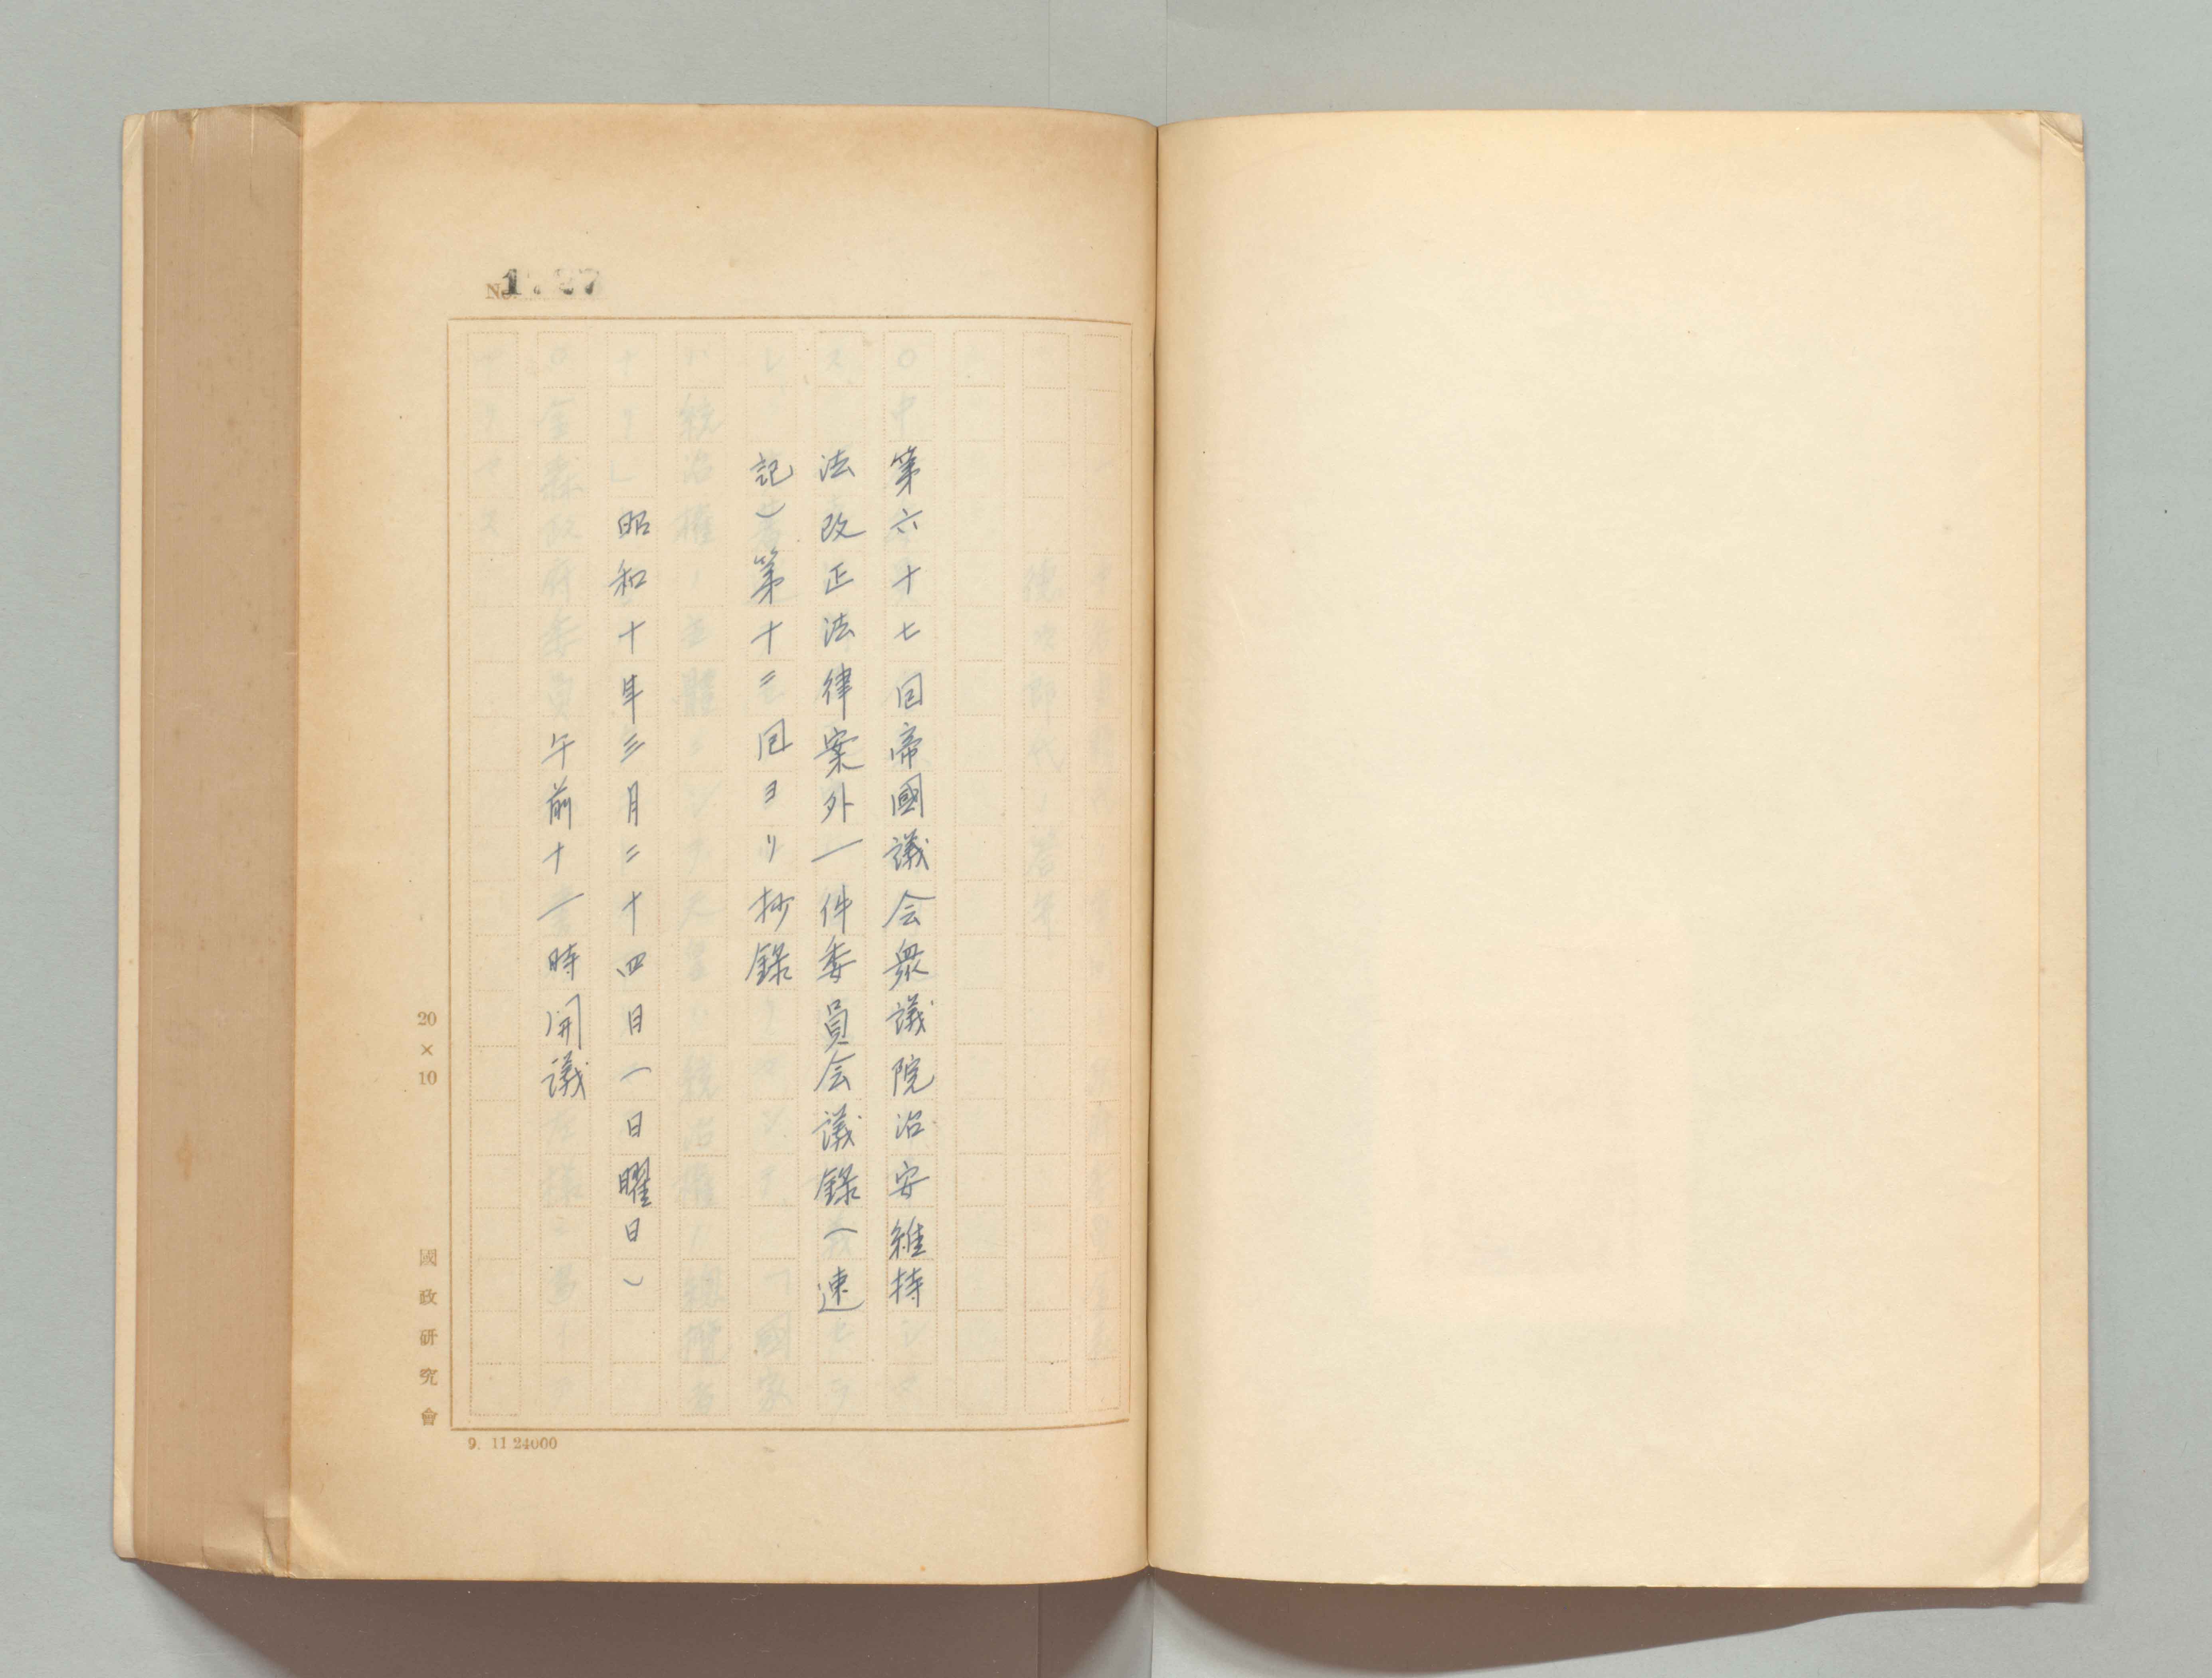 第六十七回帝國議会衆議院治安維持
法改正法律案外一件委員会議錄(速
記)第十二回ヨリ抄錄
昭和十年三月二十四日(日曜日)
午前十一時開議
No.
20×10
國政研究會
9. 11.24000